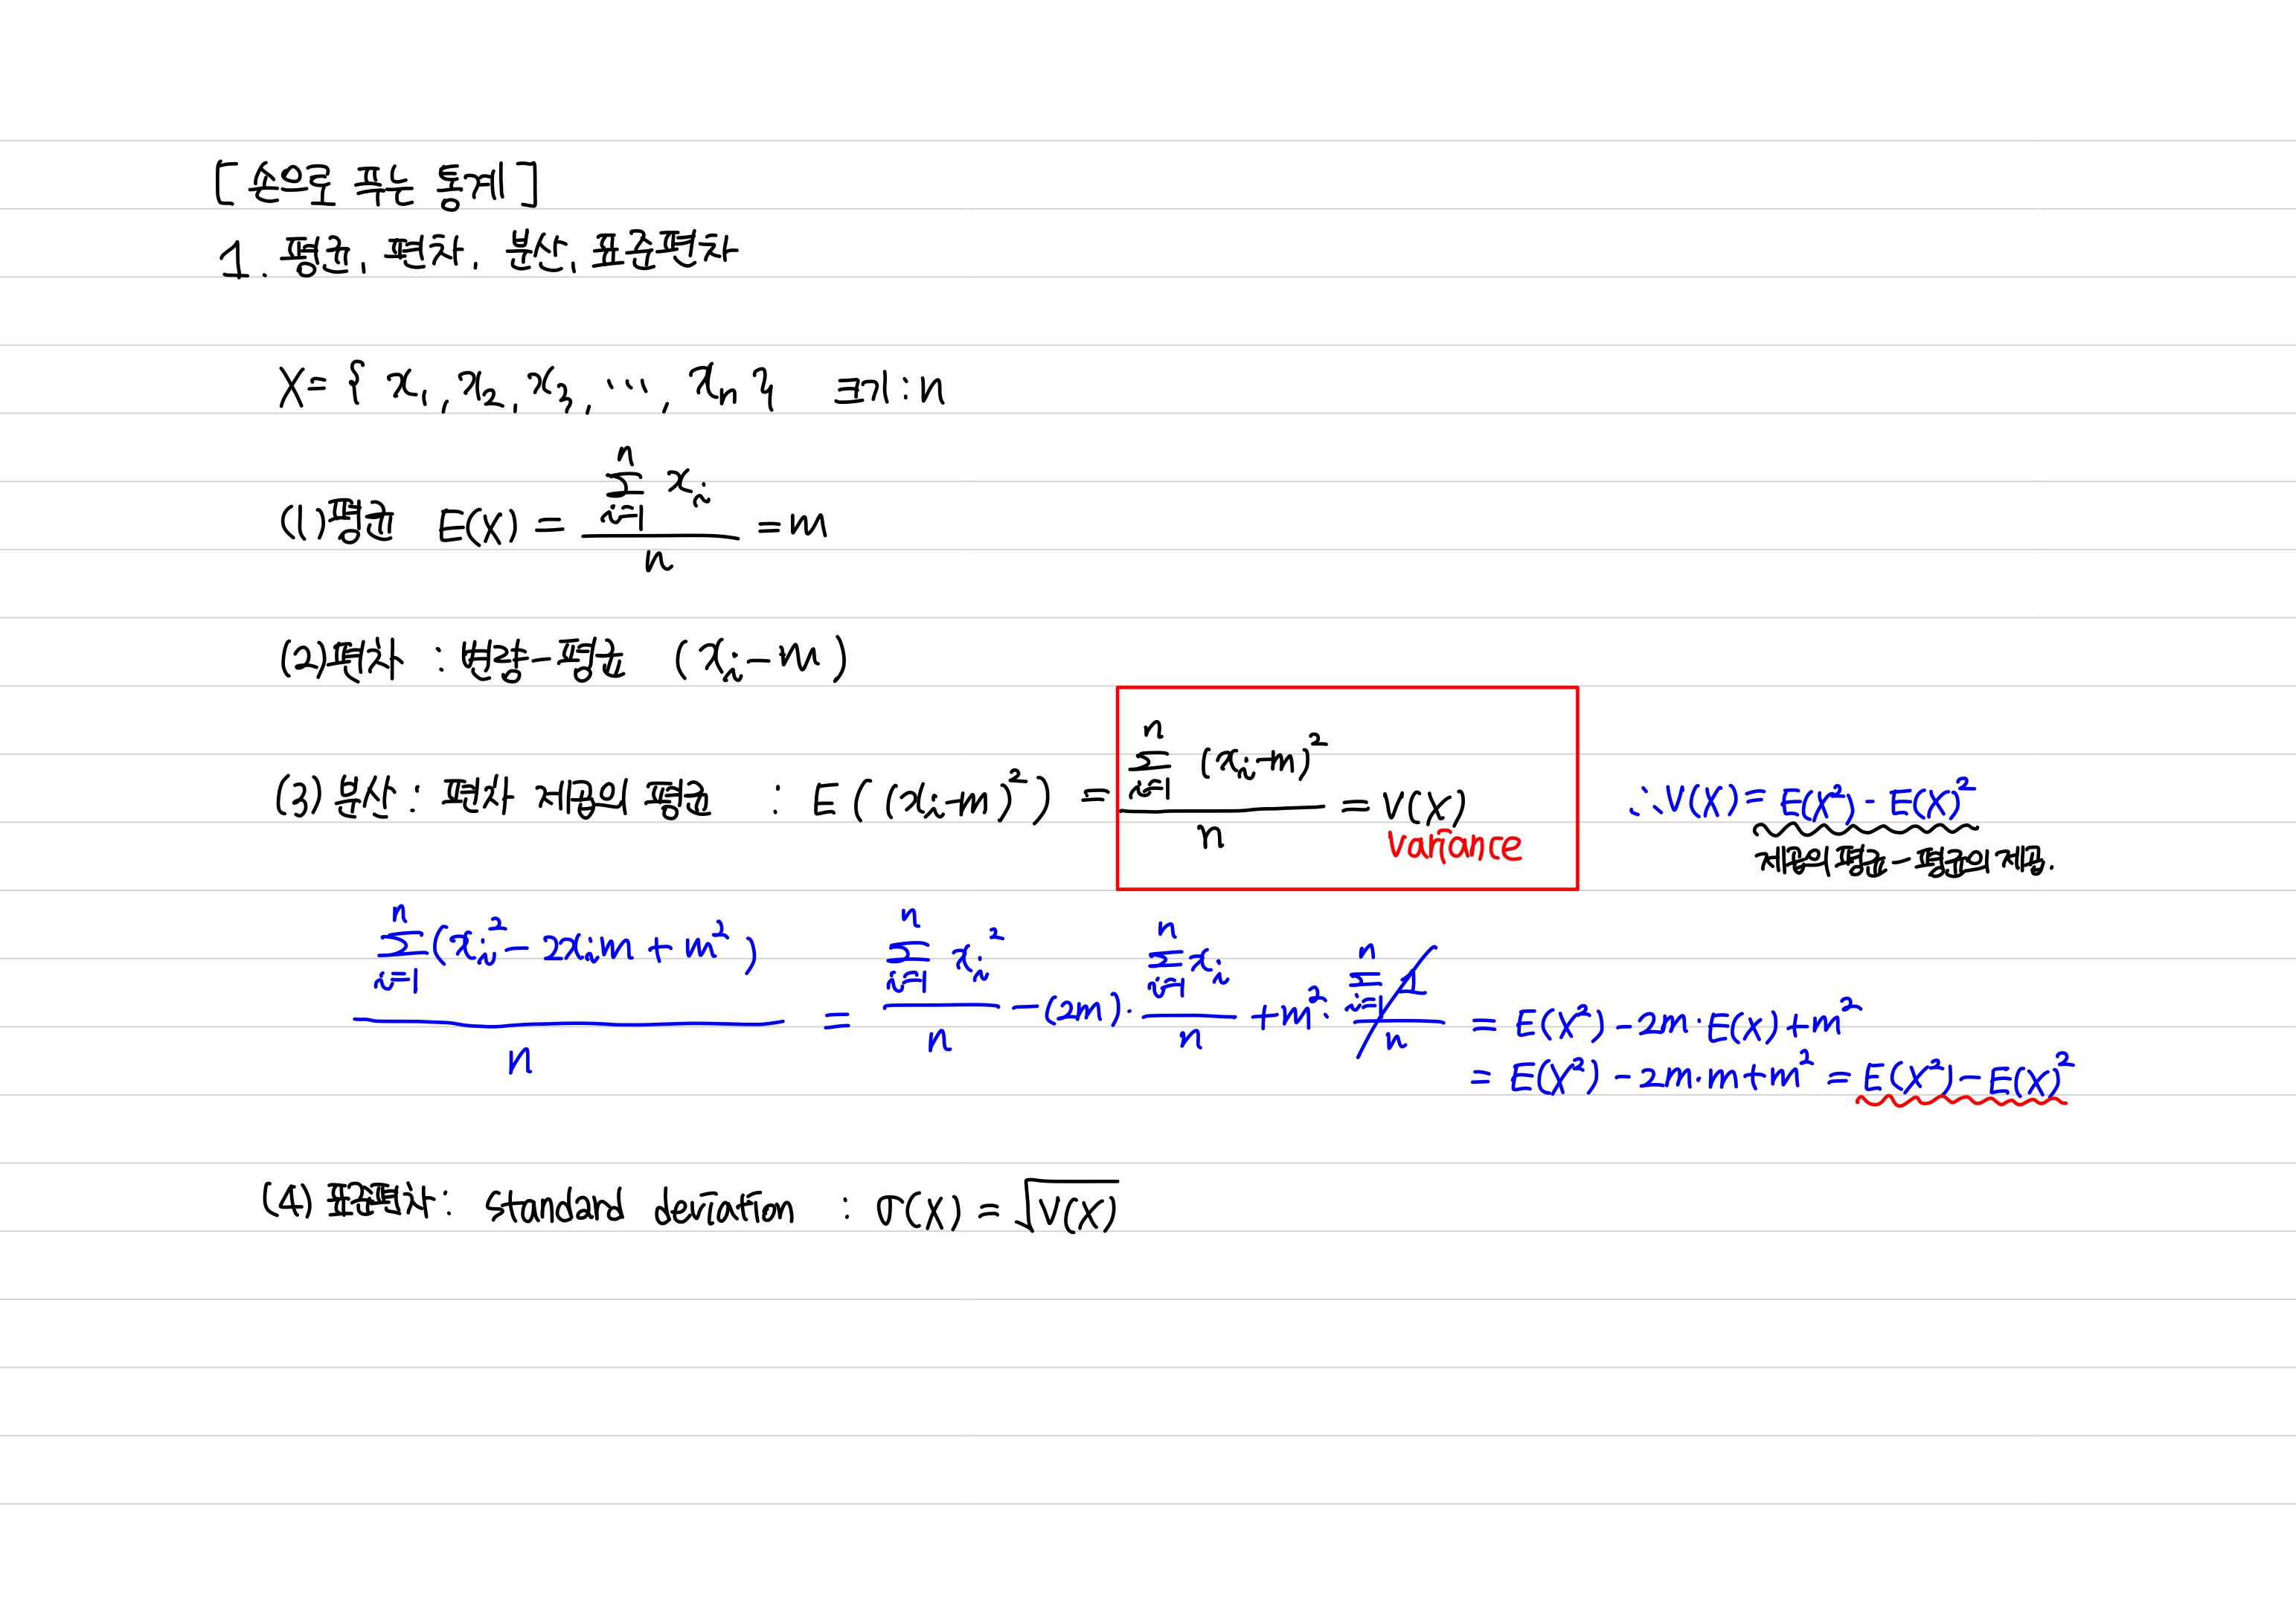 [손으로 푸는 통계]
1. 평균, 편차, 분산, 표준편차
X = { x₁, x₂, x₃, ⋯, xₙ } 크기 : n
(1) 평균 E(X) = \frac{\sum_{i=1}^{n} x_i}{n} = m
(2) 편차 : 변량 - 평균 (x_i - m)
(3) 분산 : 편차 제곱의 평균 : E((x_i - m)²) = \frac{\sum_{i=1}^{n} (x_i - m)^2}{n} = V(X)
Variance
∴ V(X) = E(X²) - E(X)²
제곱의 평균 - 평균의 제곱.
\frac{\sum_{i=1}^{n} (x_i^2 - 2x_i m + m^2)}{n} = \frac{\sum_{i=1}^{n} x_i^2}{n} - (2m) · \frac{\sum_{i=1}^{n} x_i}{n} + m² · \frac{\sum_{i=1}^{n} 1}{n} = E(X²) - 2m · E(X) + m²
= E(X²) - 2m · m + m² = E(X²) - E(X)²
(4) 표준편차 : standard deviation : σ(X) = √V(X)